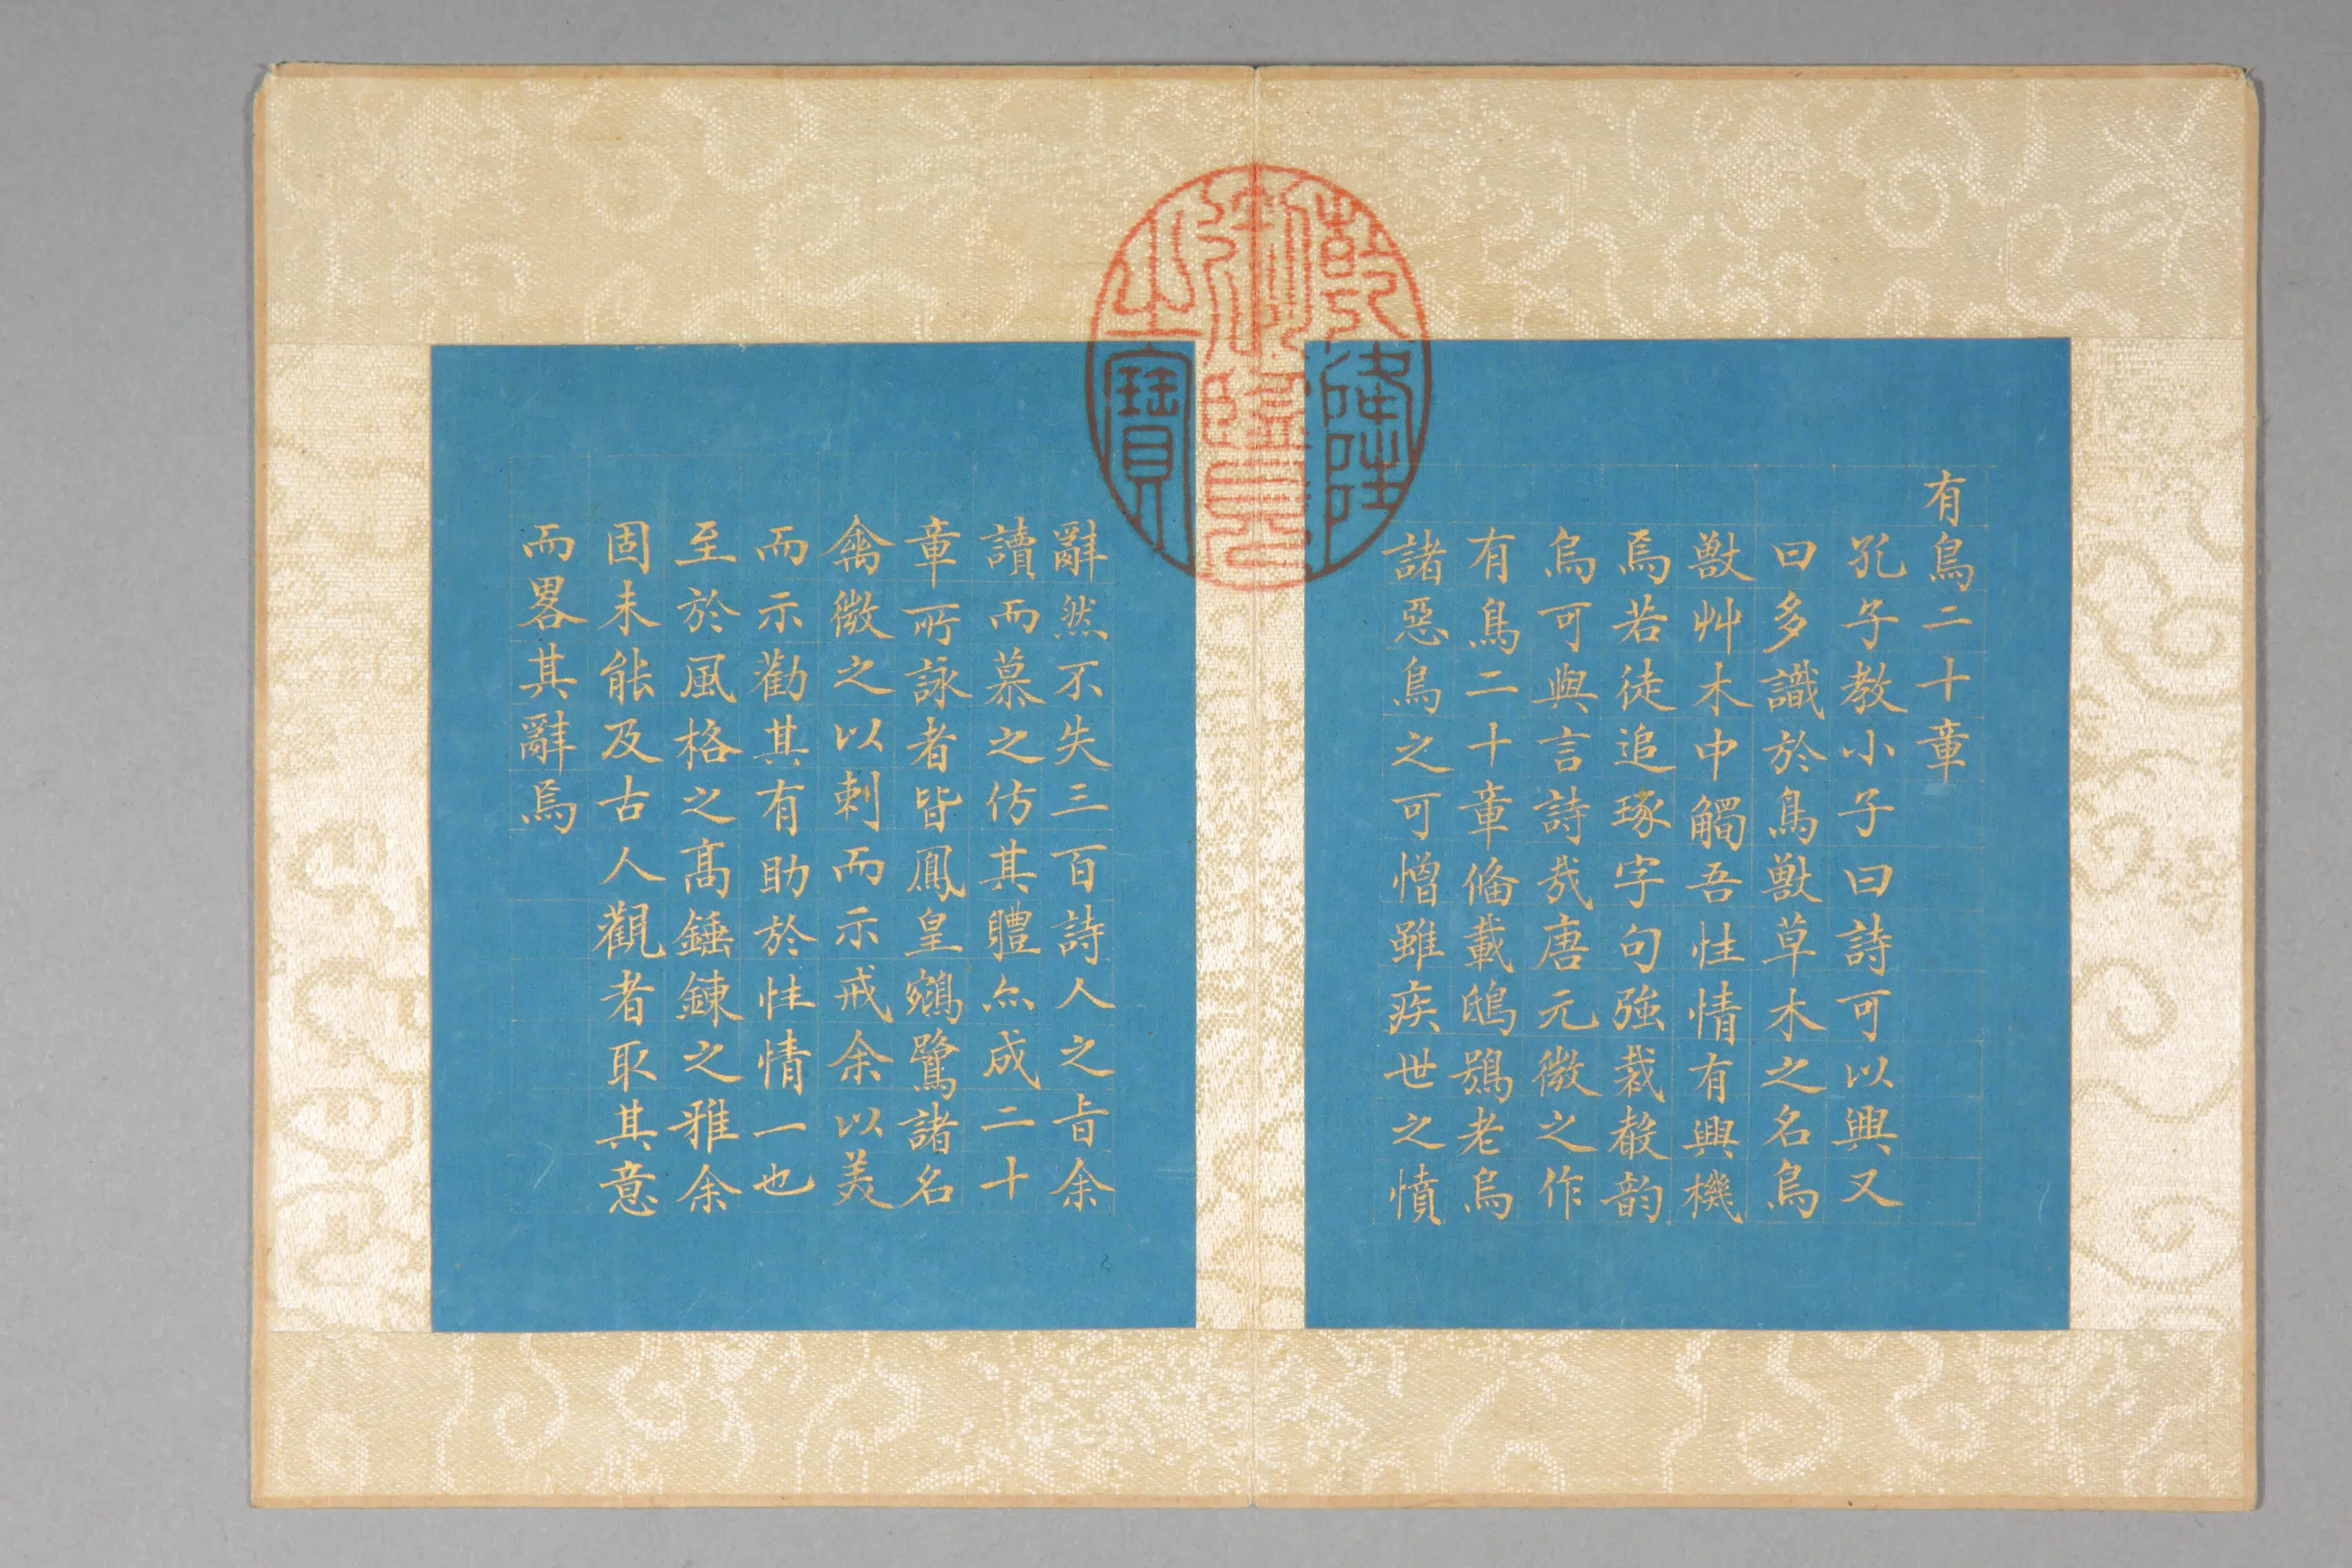 有鳥二十章
孔子教小子曰詩可以興又
曰多識於鳥獸草木之名鳥
獸艸木中觸吾性情有興機
焉若徒追琢字句強裁聲韵
烏可與言詩㢤唐元微之作
有鳥二十章偹載鴟鴞老烏
諸惡鳥之可憎雖疾世之憤
辭然不失三百詩人之旨余
讀而慕之仿其體亦成二十
章所詠者皆鳳皇鵷鷺諸名
禽微之以刺而示戒余以美
而示勸其有助於性情一也
至於風格之髙錘鍊之雅余
固未能及古人觀者取其意
而畧其辭焉
乾隆御覽之寶